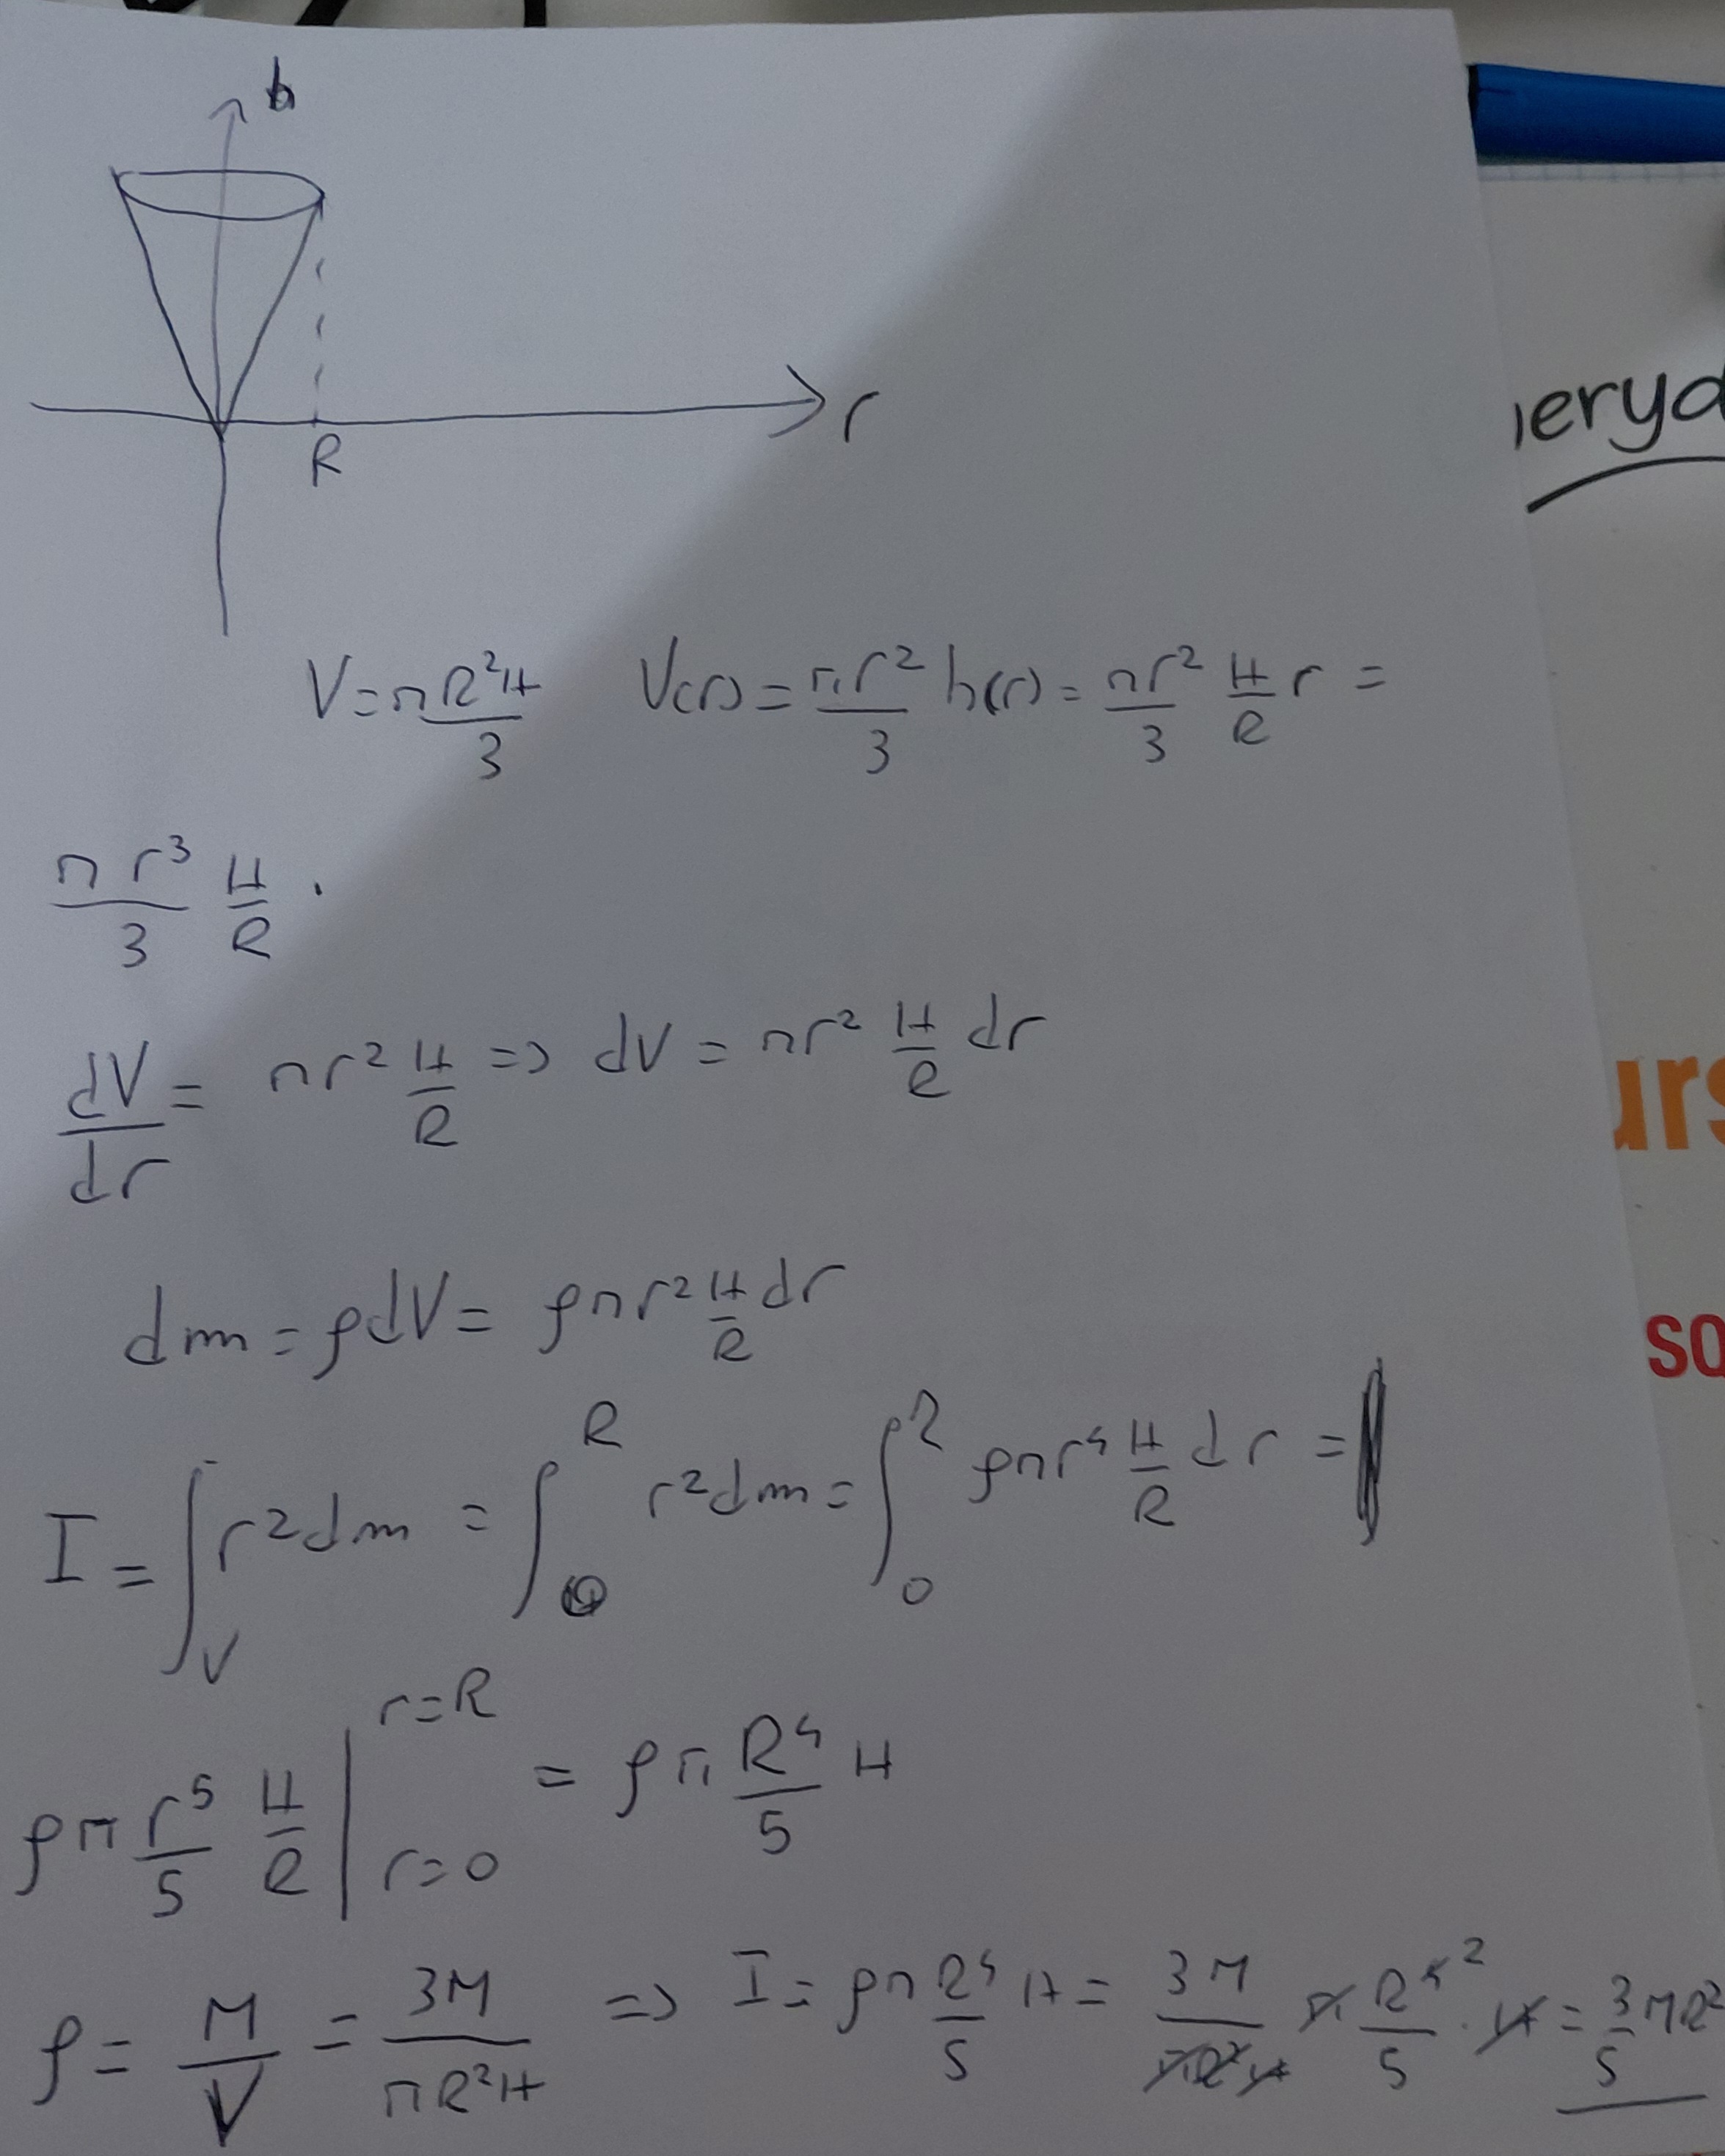 h
r
R
V = πR²H/3 V(r) = πr²/3 h(r) = πr²/3 H/R r =
πr³/3 H/R .
dV/dr = πr² H/R => dV = πr² H/R dr
dm = ρdV = ρπr² H/R dr
I = ∫_V r²dm = ∫_0^R r²dm = ∫_0^R ρπr⁴ H/R dr =
ρπ r⁵/5 H/R |_{r=0}^{r=R} = ρπ R⁴/5 H
ρ = M/V = 3M/πR²H => I = ρπ R⁴/5 H = 3M/πR²H π R⁴ ²/5 · H = 3/5 MR²